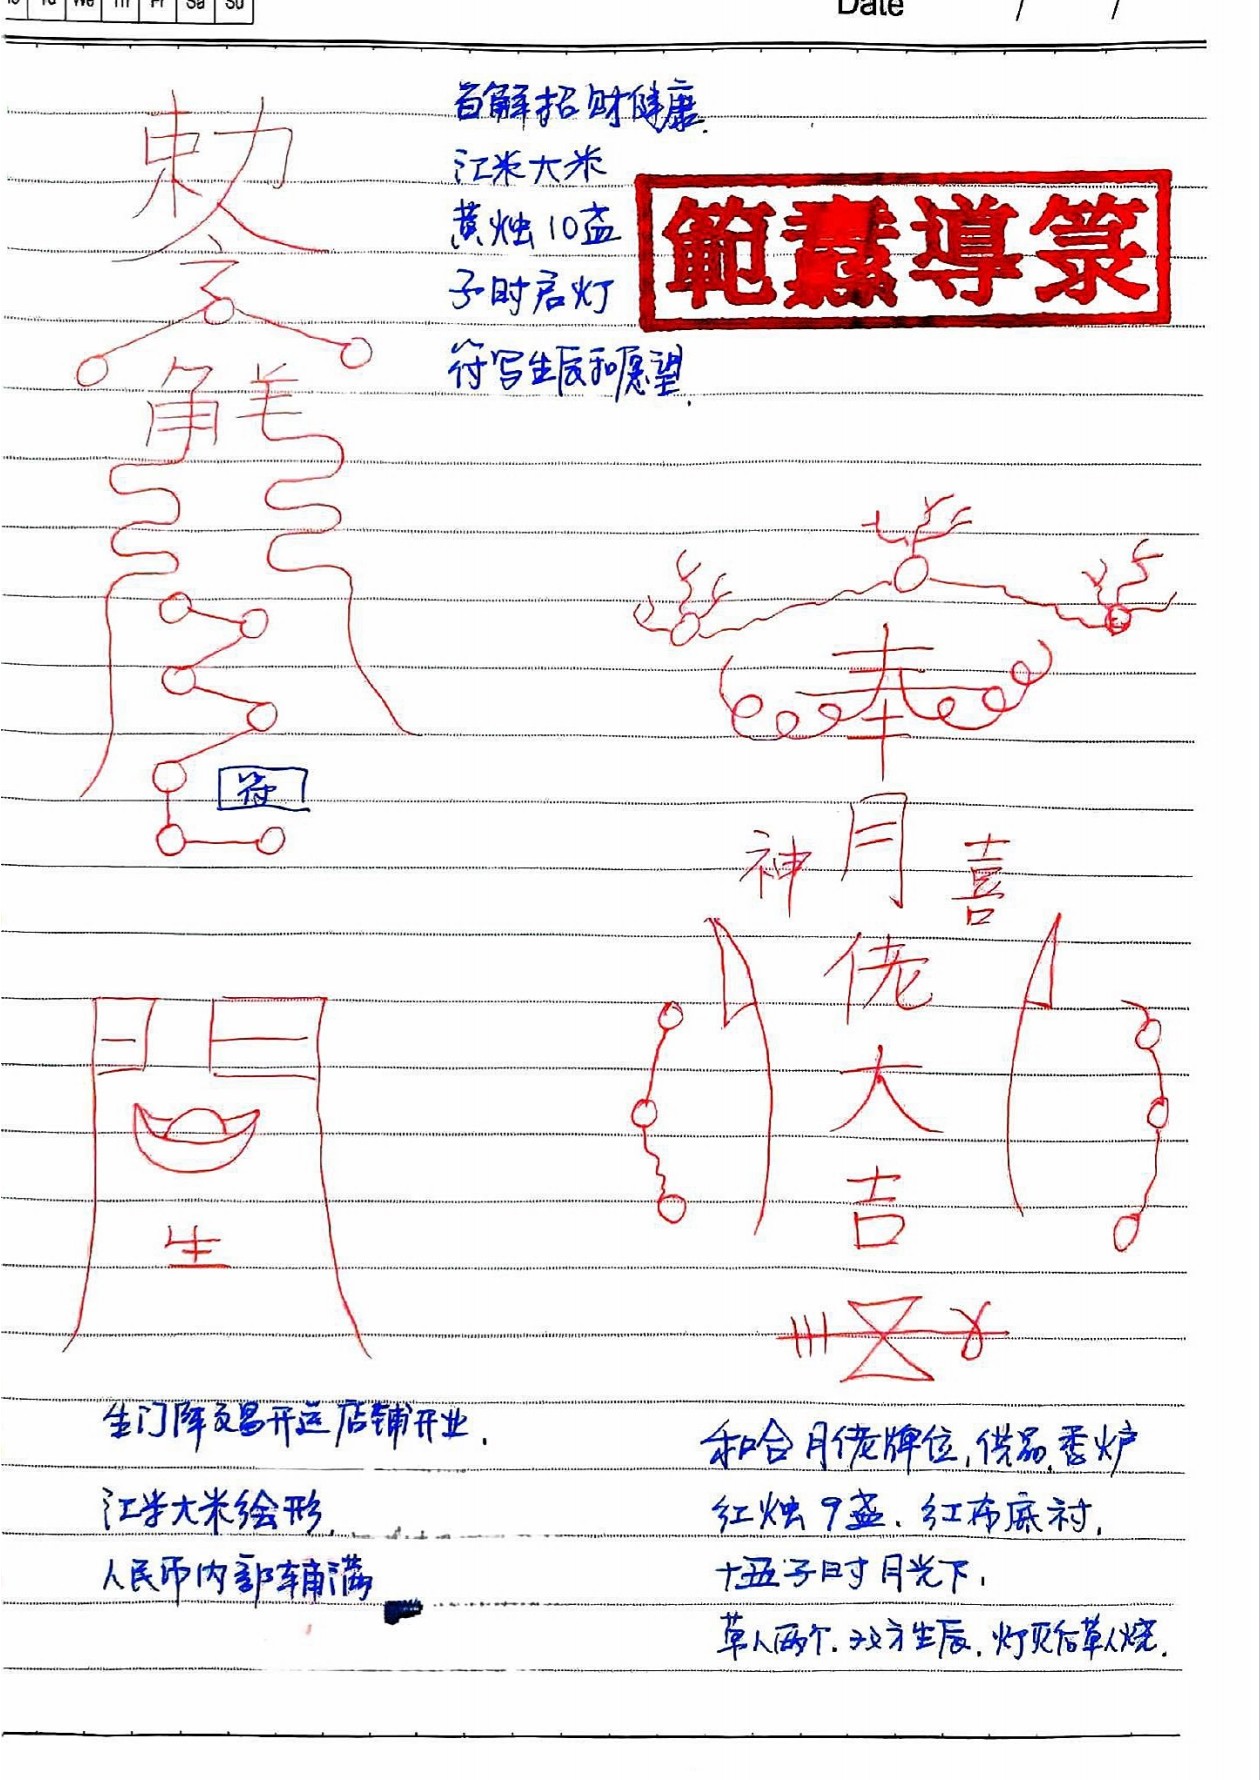 Tu We Th Fr Sa Su
Date / /
敕
令
解
百解招财健康.
江米大米
黄烛10盏
子时启灯
符写生辰和愿望.
範蠢導箓
符
奉
神 月 喜
佬
大
吉
生
生门阵交易开运店铺开业.
江米大米绘形.
人民币内部铺满
和合月佬牌位,供品,香炉
红烛9盏.红布底衬.
十五子时月光下.
草人两个.双方生辰.灯灭后草人烧.